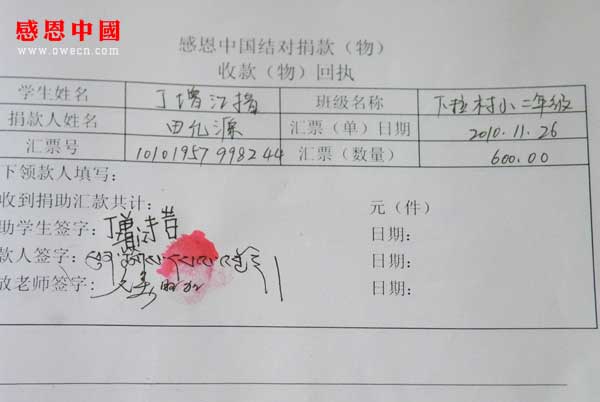 感恩中國
www.owecn.com
感恩中国结对捐款（物）
收款（物）回执
学生姓名 丁增江措 班级名称 下拉村小二年级
捐款人姓名 田允源 汇票（单）日期 2010.11.26
汇票号 10101957998244 汇票（数量） 600.00
下领款人填写：
收到捐助汇款共计： 元（件）
助学生签字： 丁增 日期：
款人签字： 日期：
放老师签字： 日期：